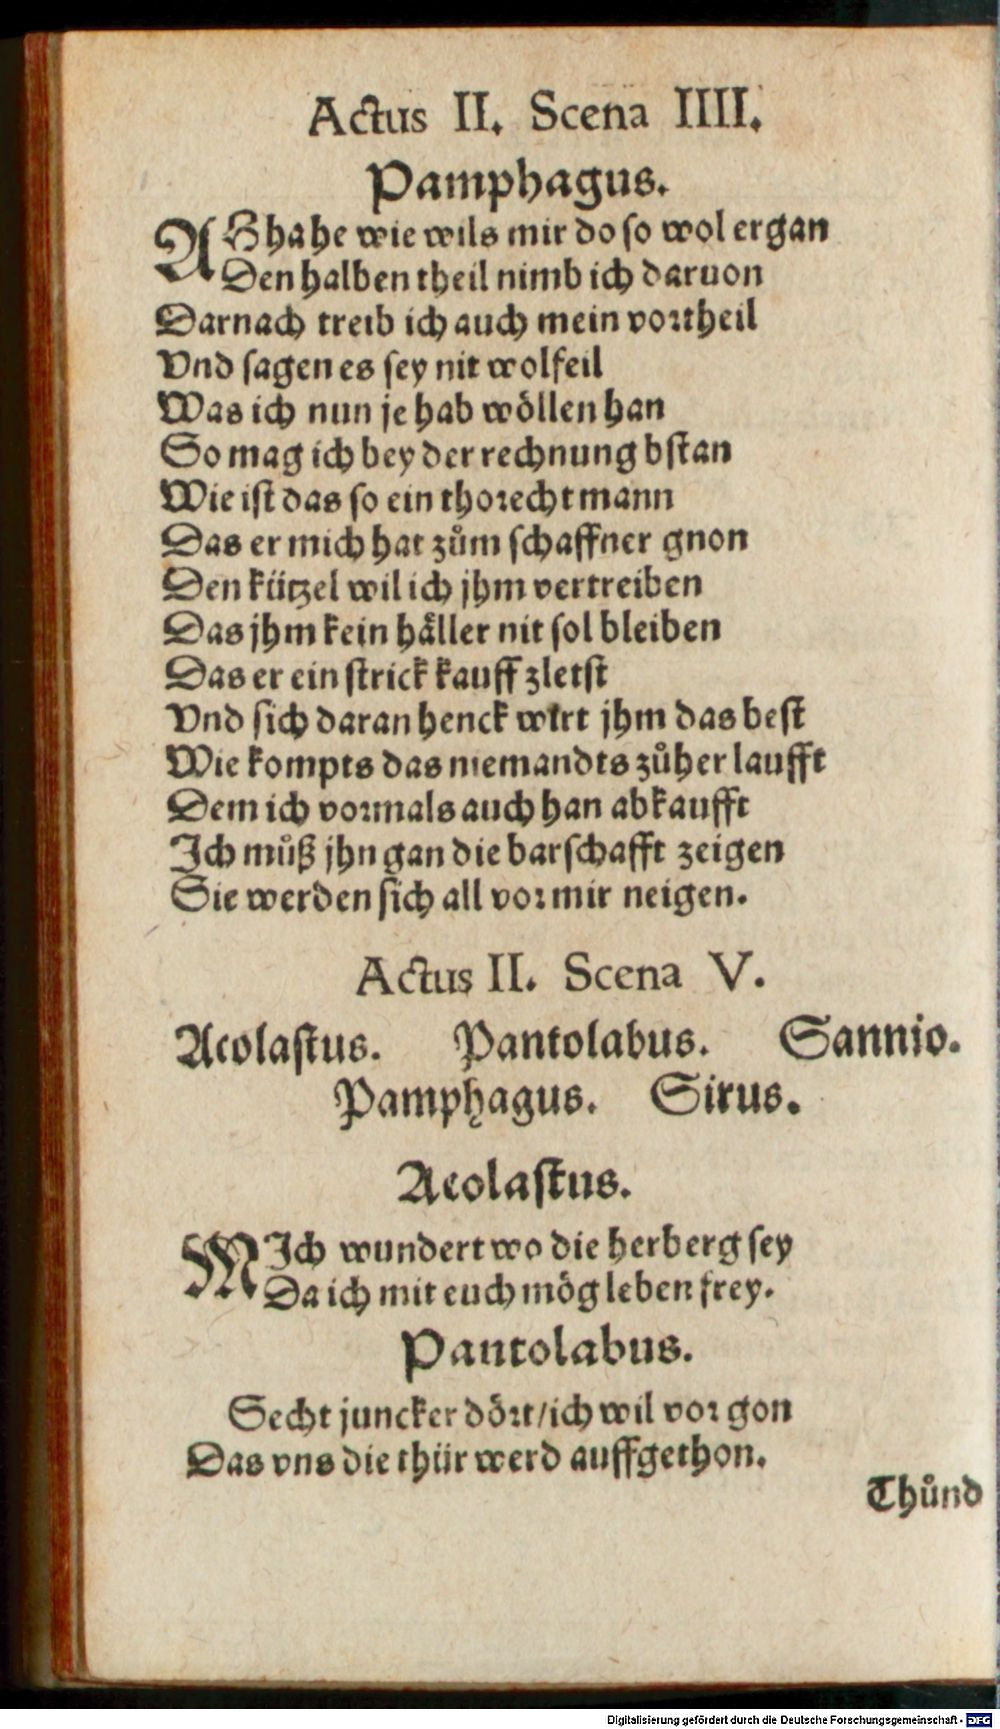 Actus II. Scena IIII.
Pamphagus.
AHhahe wie wils mir do so wol ergan
Den halben theil nimb ich daruon
Darnach treib ich auch mein vortheil
Vnd sagen es sey nit wolfeil
Was ich nun je hab wöllen han
So mag ich bey der rechnung bstan
Wie ist das so ein thorecht mann
Das er mich hat zuͦm schaffner gnon
Den kützel wil ich jhm vertreiben
Das jhm kein haͤller nit sol bleiben
Das er ein strick kauff zletst
Vnd sich daran henck wirt jhm das best
Wie kompts das niemandts zuͦher laufft
Dem ich vormals auch han abkaufft
Ich muͦß jhn gan die barschafft zeigen
Sie werden sich all vor mir neigen.
Actus II. Scena V.
Acolastus. Pantolabus. Sannio.
Pamphagus. Sirus.
Acolastus.
MIch wundert wo die herberg sey
Da ich mit euch mög leben frey.
Pantolabus.
Secht juncker dört/ich wil vor gon
Das vns die thür werd auffgethon.
Thuͦnd
Digitalisierung gefördert durch die Deutsche Forschungsgemeinschaft - DFG